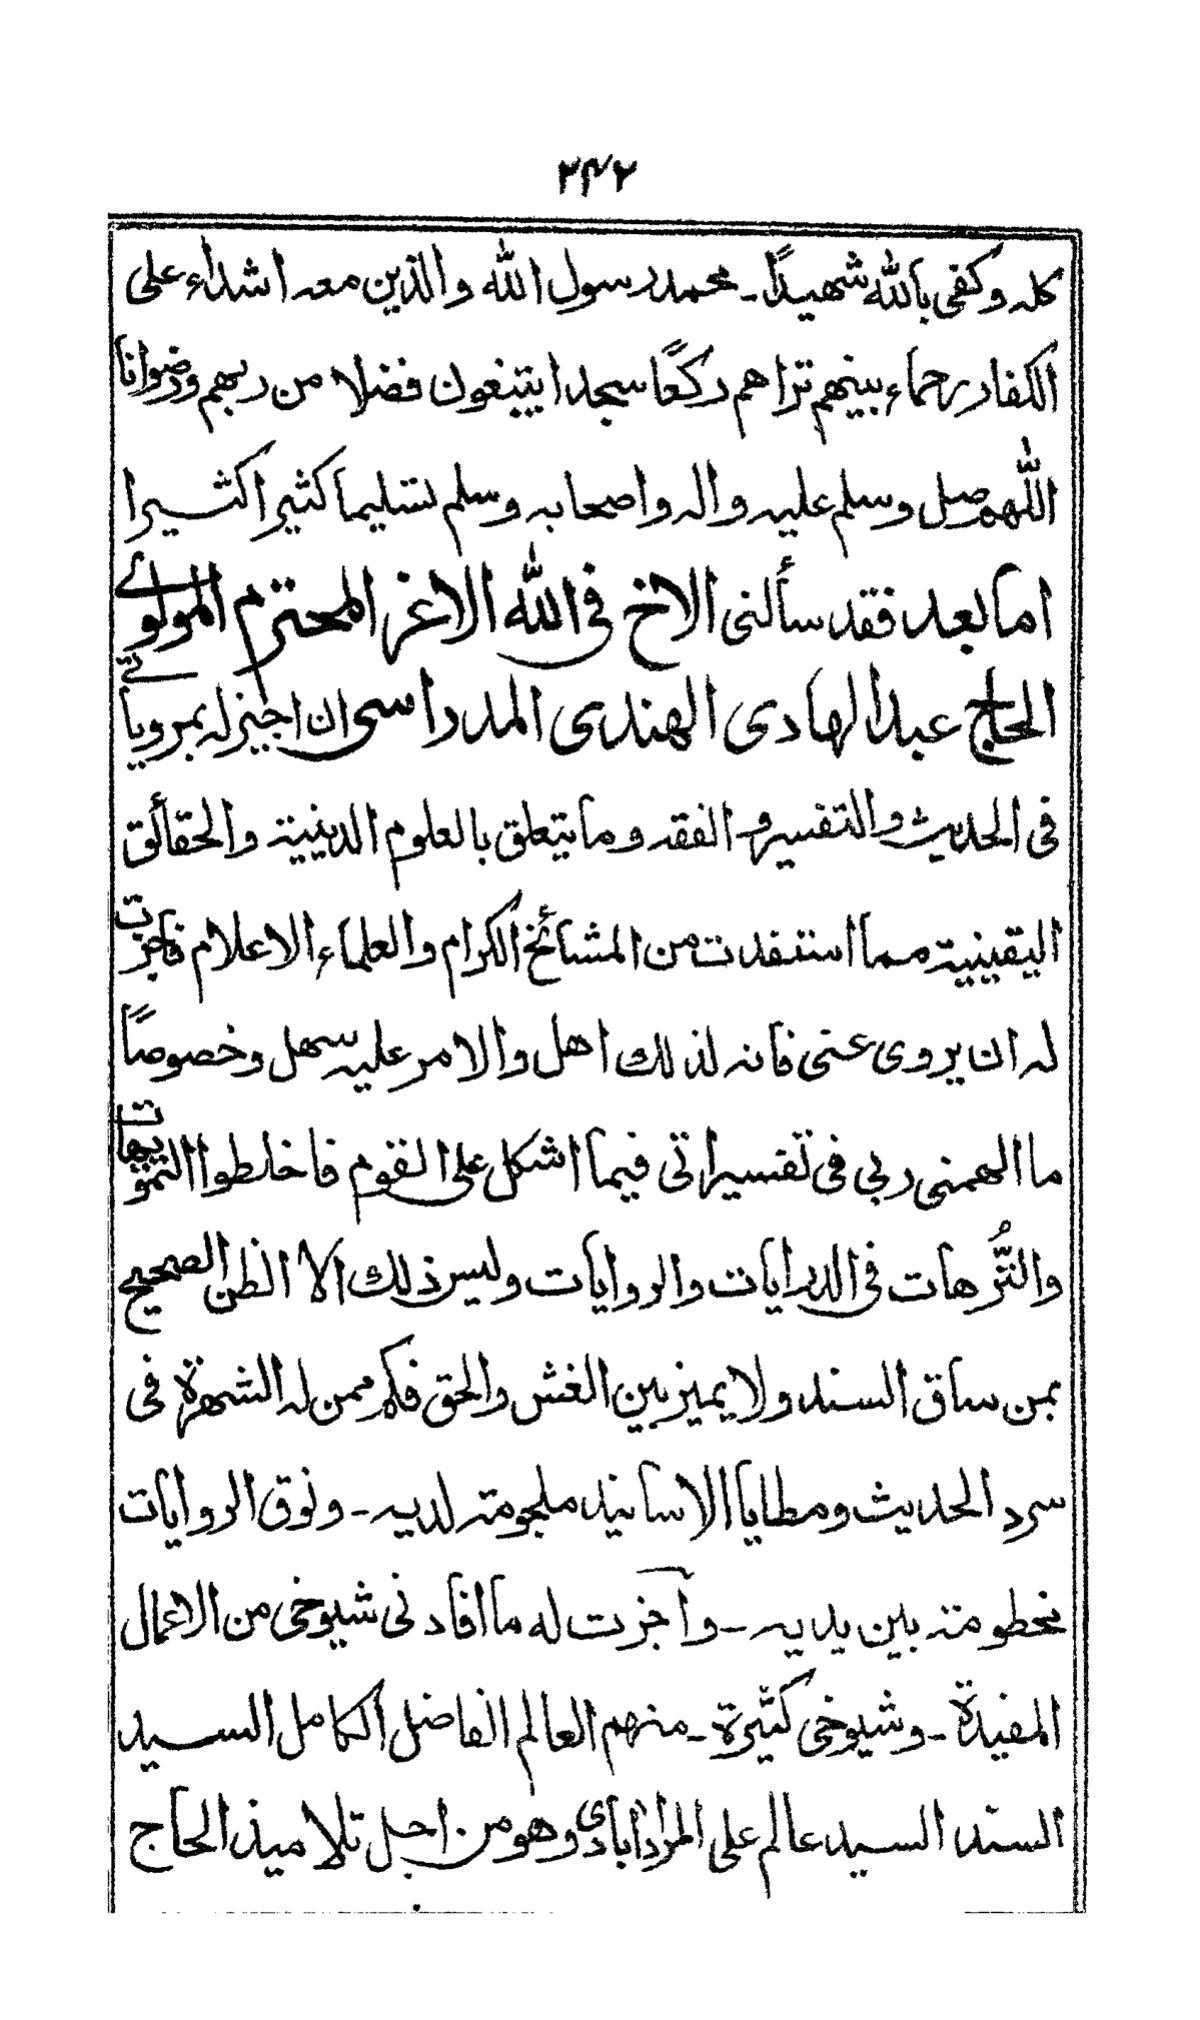 ۲۴۲
كله وكفى بالله شهيدًا۔ محمد رسول الله والذين معه اشداء على
الكفار رحماء بينهم تراهم ركعًا سجدا يبتغون فضلا من ربهم ورضوانا
اللهم صل وسلم عليه واله واصحابه وسلم تسليما كثيرا كثيرا
اما بعد فقد سألنى الاخ فى الله الاغر المحترم المولوے
الحاج عبدالهادى الهندى المدراسى ان اجيز له بمروياتے
فى الحديث والتفسير و الفقه وما يتعلق بالعلوم الدينية والحقائق
اليقينية مما استفدت من المشائخ الكرام والعلماء الاعلام فاجزت
له ان يروى عنى فانه لذلك اهل والامر عليه سهل وخصوصًا
ما الهمنى ربى فى تفسيراتى فيما اشكل على القوم فاخلطوا التمويهات
والتُّرهات فى الدرايات والروايات وليس ذلك الا الظن الصحيح
بمن ساق السند ولا يميز بين الغش والحق فكم ممن له الشهرة فى
سرد الحديث ومطايا الاسانيد ملجومة لديه۔ ونوق الروايات
مخطومة بين يديه۔ وأجزت له ما افادنى شيوخى من الاعمال
المفيدة۔ وشيوخى كثيرة۔ منهم العالم الفاضل الكامل السيد
السند السيد عالم على المرادابادى وهو من اجل تلاميذ الحاج